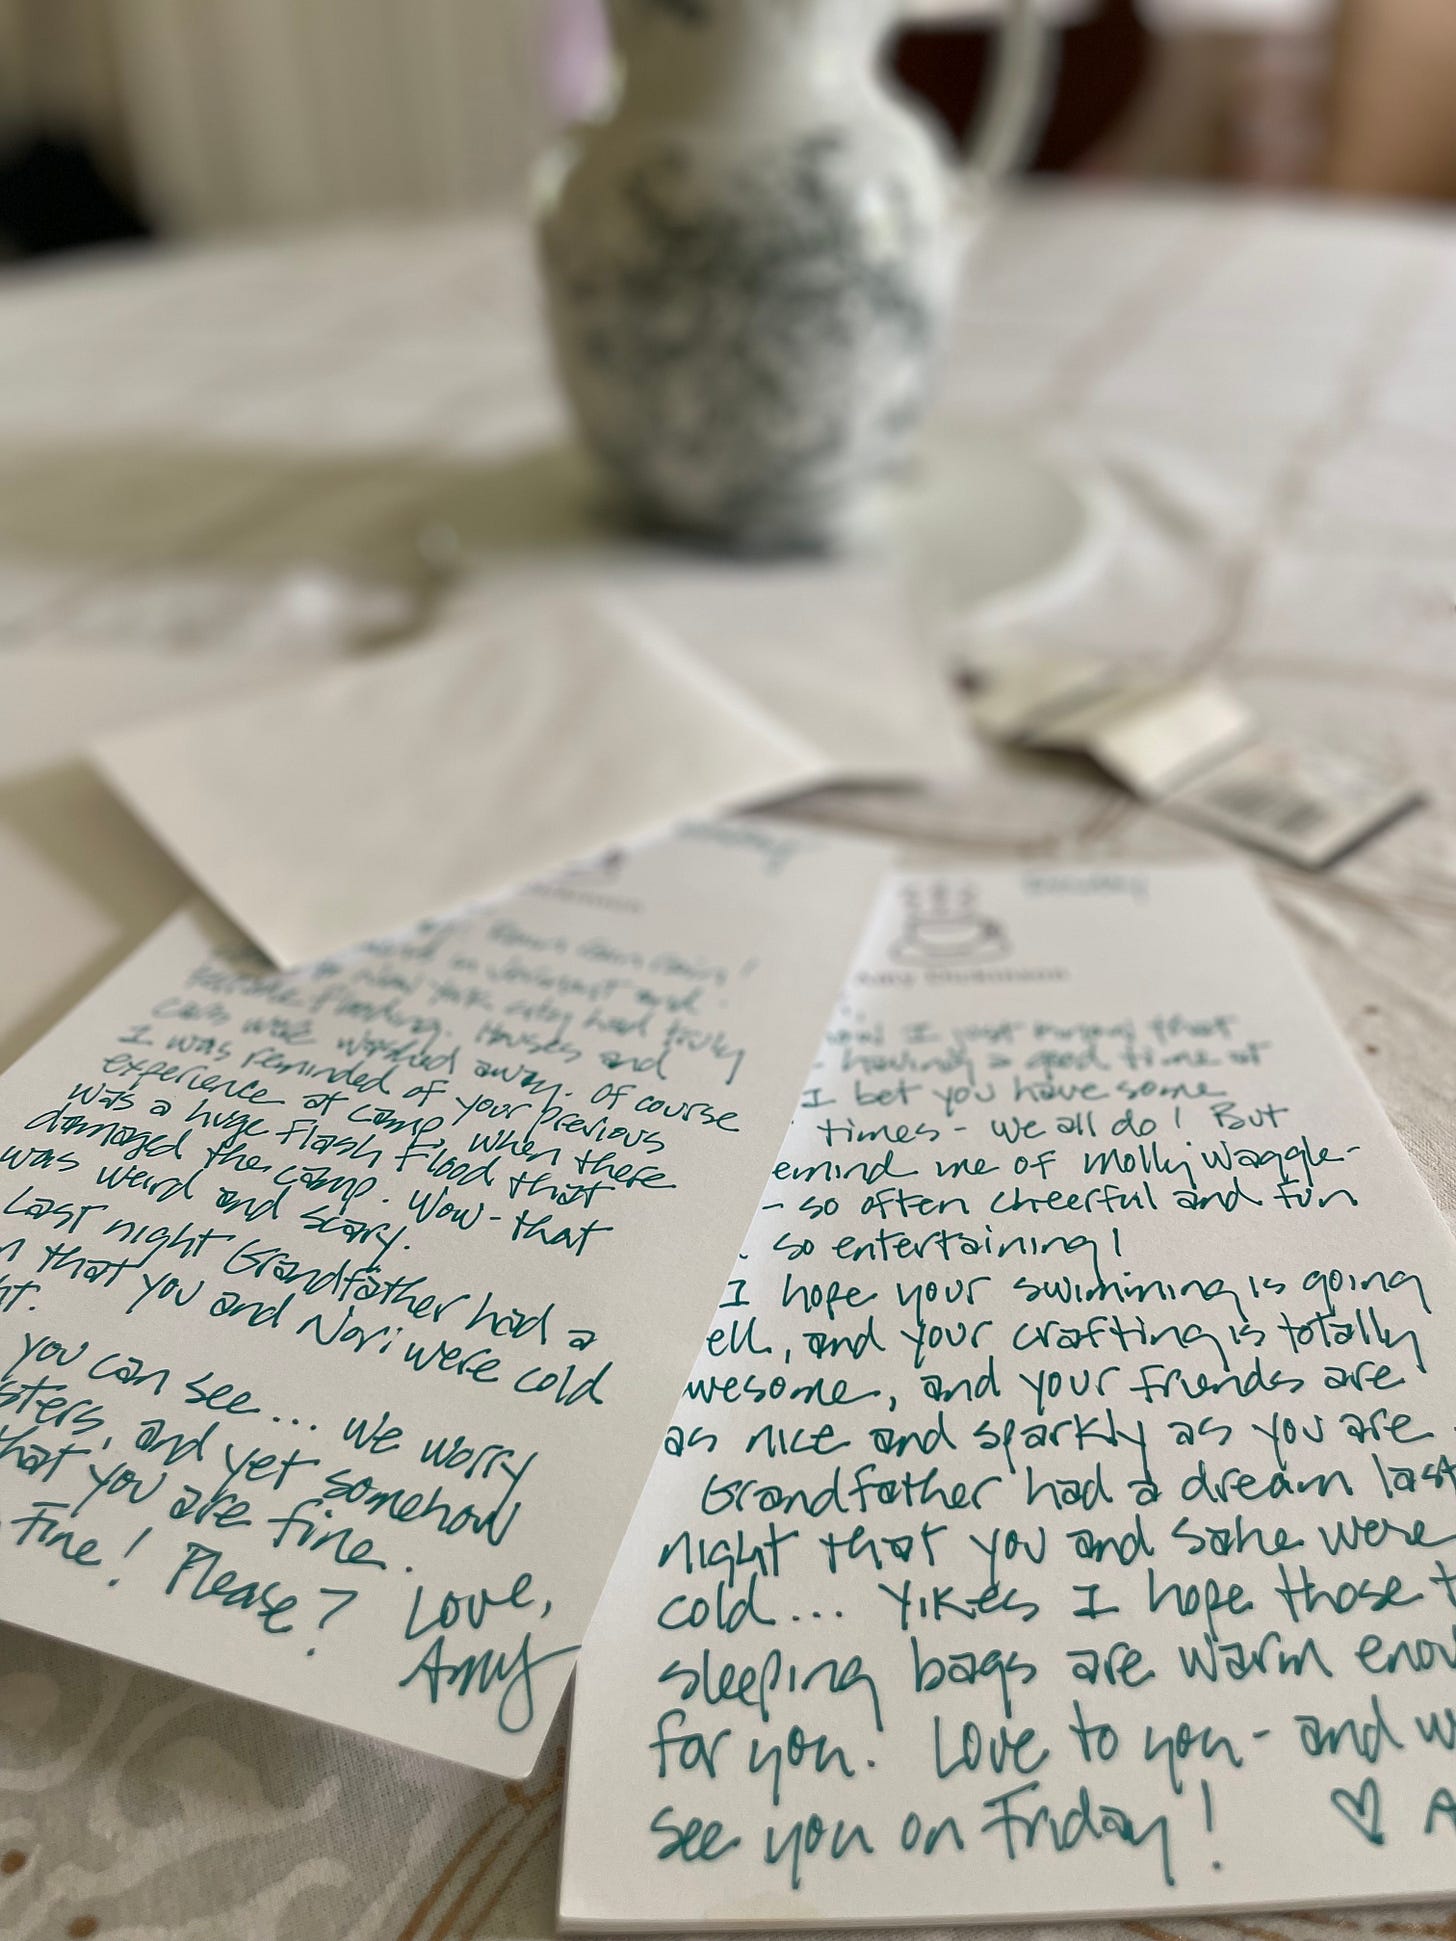 Rain rain rain!
in Vermont and
New York City had truly
terrible flooding. Houses and
cars were washed away. Of course
I was reminded of your previous
experience at camp, when there
was a huge flash flood that
damaged the camp. Wow - that
was weird and scary.
Last night Grandfather had a
that you and Nori were cold
you can see... we worry
and yet somehow
that you are fine.
Fine! Please?
Love,
Amy
Amy Dickinson
I just know that
having a good time at
I bet you have some
times - we all do! But
emind me of Molly Waggle-
- so often cheerful and fun
so entertaining!
I hope your swimming is going
ell, and your crafting is totally
wesome, and your friends are
as nice and sparkly as you are
Grandfather had a dream last
night that you and Sahe were
cold... Yikes I hope those
sleeping bags are warm enou
for you. Love to you - and w
see you on Friday! ♡ A